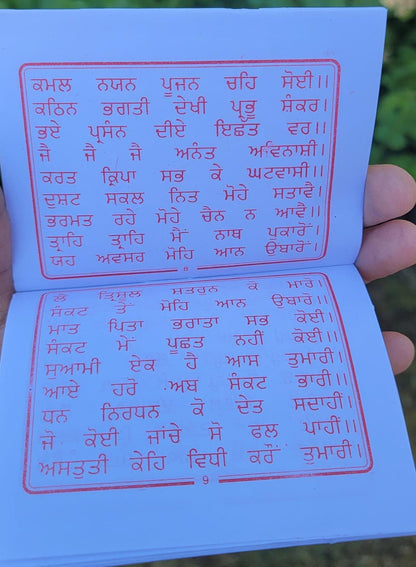 ਕਮਲ ਨਯਨ ਪੂਜਨ ਚਹਿ ਸੋਈ।।
ਕਠਿਨ ਭਗਤੀ ਦੇਖੀ ਪ੍ਰਭੂ ਸ਼ੰਕਰ।
ਭਏ ਪ੍ਰਸੰਨ ਦੀਏ ਇਛਤ ਵਰ।।
ਜੈ ਜੈ ਜੈ ਅਨੰਤ ਅਵਿਨਾਸ਼ੀ।
ਕਰਤ ਕ੍ਰਿਪਾ ਸਭ ਕੇ ਘਟਵਾਸੀ।।
ਦੁਸ਼ਟ ਸਕਲ ਨਿਤ ਮੋਹੇ ਸਤਾਵੈ।
ਭਰਮਤ ਰਹੇ ਮੋਹੇ ਚੈਨ ਨ ਆਵੈ।।
ਤ੍ਰਾਹਿ ਤ੍ਰਾਹਿ ਮੈਂ ਨਾਥ ਪੁਕਾਰੋਂ।
ਯਹ ਅਵਸਰ ਮੋਹਿ ਆਨ ਉਬਾਰੋਂ।
8
ਲੈ ਤ੍ਰਿਸ਼ੂਲ ਸ਼ਤਰੁਨ ਕੋ ਮਾਰੋ।
ਸੰਕਟ ਤੋਂ ਮੋਹਿ ਆਨ ਉਬਾਰੋ।।
ਮਾਤ ਪਿਤਾ ਭਰਾਤਾ ਸਭ ਕੋਈ।
ਸੰਕਟ ਮੇਂ ਪੂਛਤ ਨਹੀਂ ਕੋਈ।।
ਸੁਆਮੀ ਏਕ ਹੈ ਆਸ ਤੁਮਾਰੀ।
ਆਏ ਹਰੋ ਅਬ ਸੰਕਟ ਭਾਰੀ।।
ਧਨ ਨਿਰਧਨ ਕੋ ਦੇਤ ਸਦਾਹੀਂ।
ਜੋ ਕੋਈ ਜਾਂਚੇ ਸੋ ਫਲ ਪਾਹੀਂ।।
ਅਸਤੁਤੀ ਕੇਹਿ ਵਿਧੀ ਕਰੌਂ ਤੁਮਾਰੀ।
9